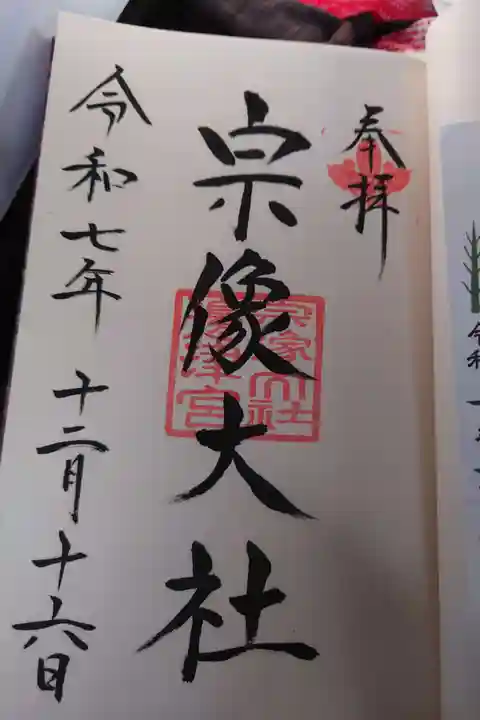 奉拝
宗像大社
宗像大社
邊津宮
令和七年 十二月十六日
令和